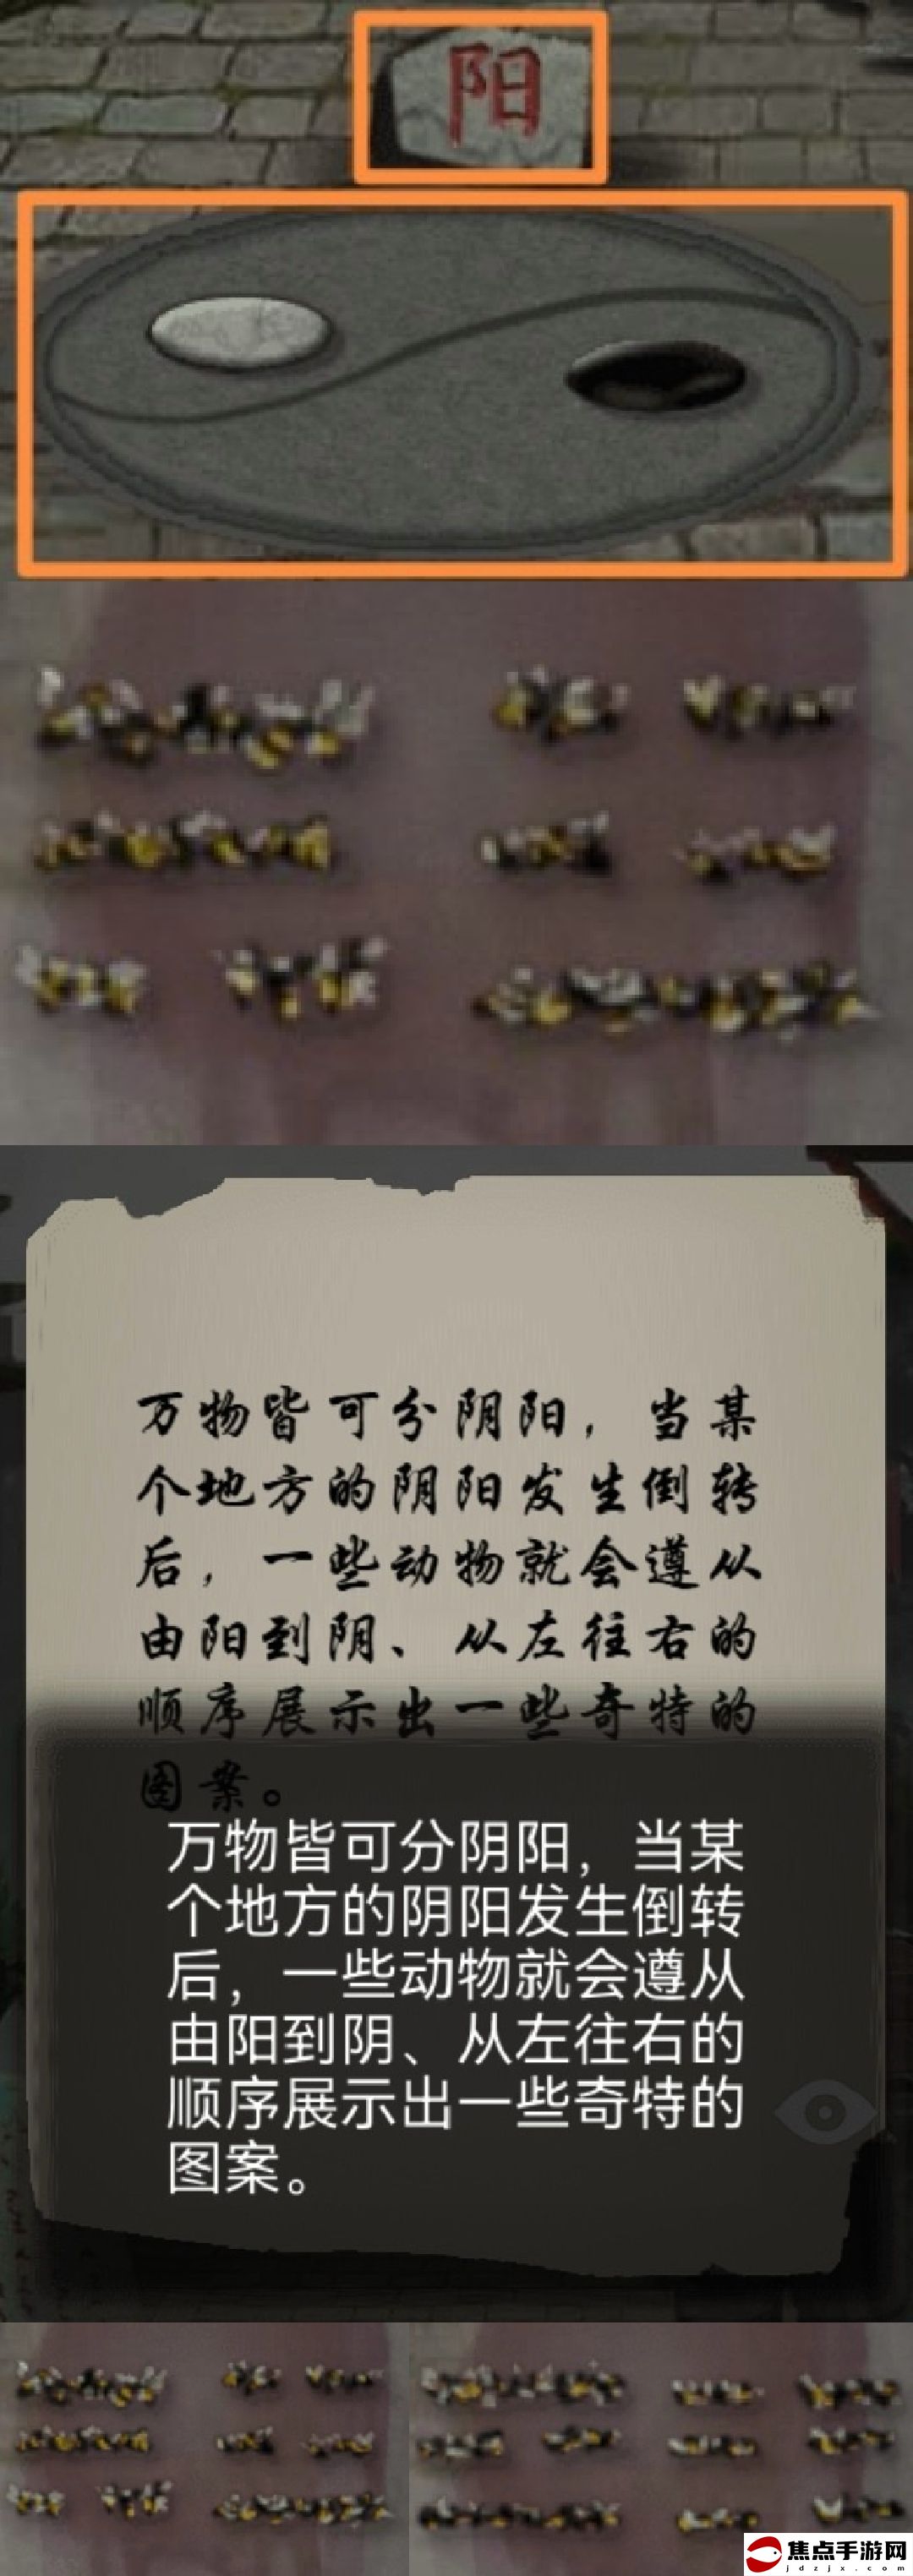 阳
万物皆可分阴阳，当某
个地方的阴阳发生倒转
后，一些动物就会遵从
由阳到阴、从左往右的
顺序展示出一些奇特的
图案。
万物皆可分阴阳，当某
个地方的阴阳发生倒转
后，一些动物就会遵从
由阳到阴、从左往右的
顺序展示出一些奇特的
图案。
焦点手游网
jdzjx.com